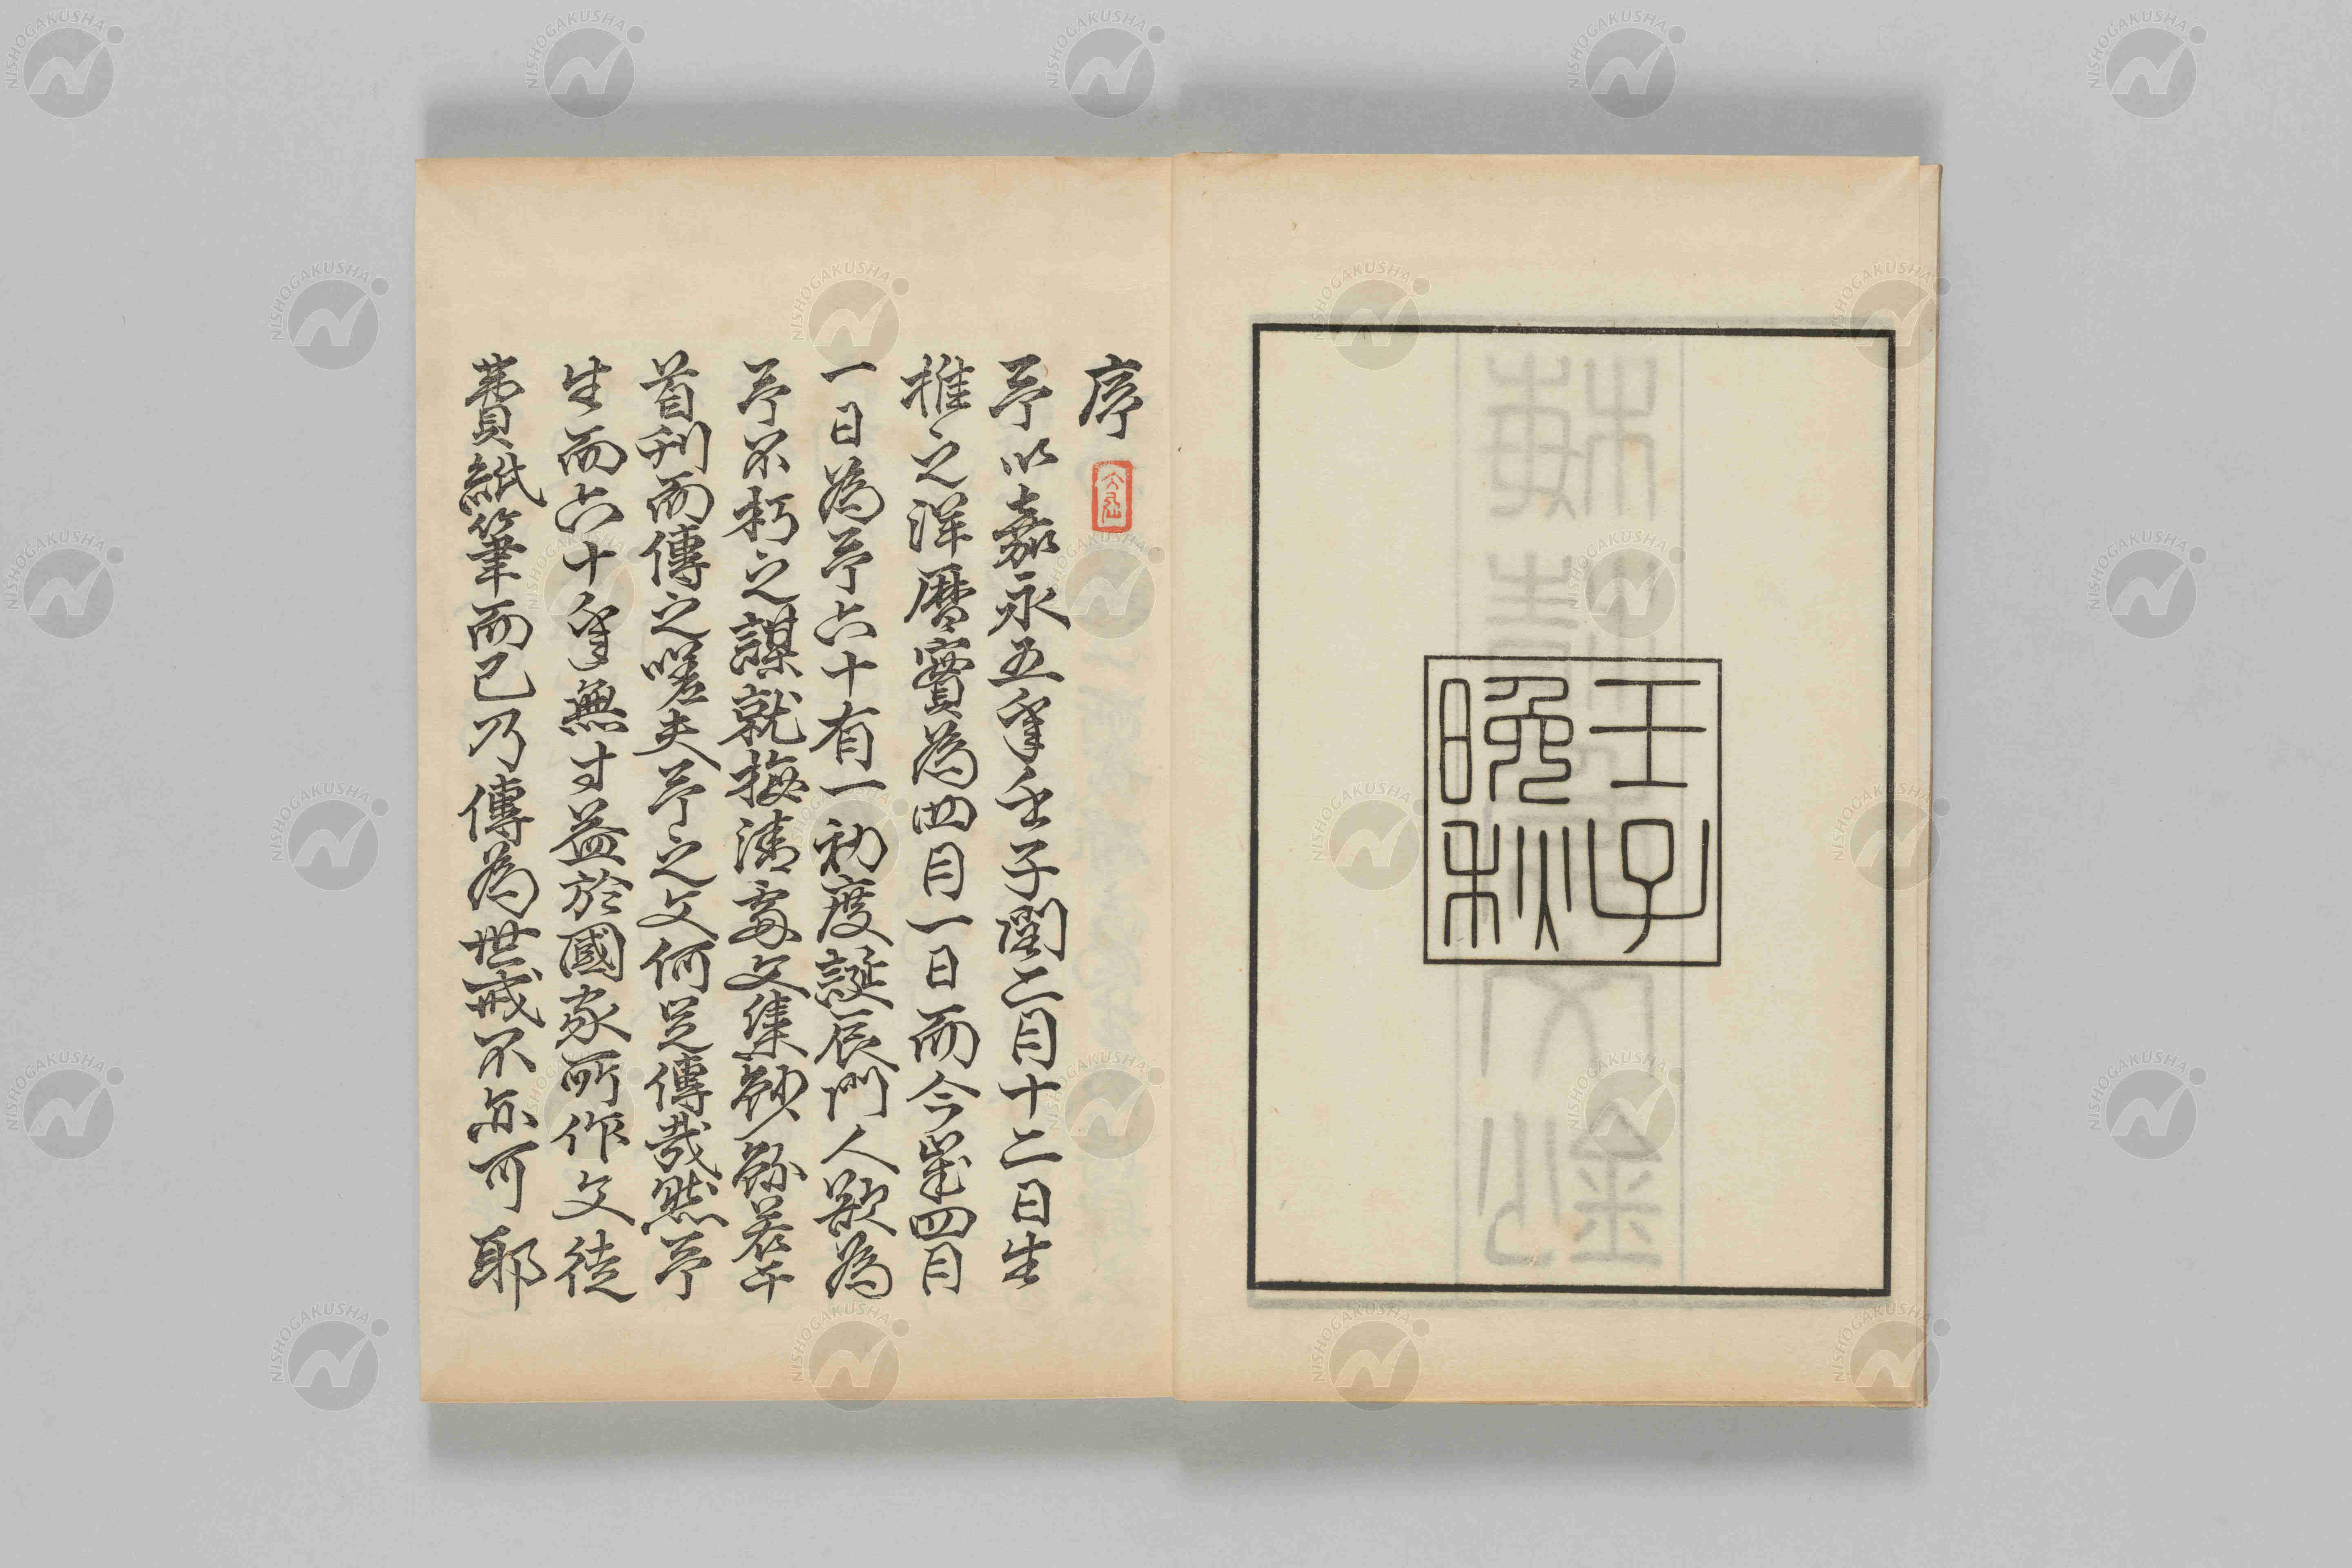 壬子
晩秋
序
予以嘉永五年壬子閏二月十二日生
推之洋暦實爲四月一日而今歳四月
一日爲予六十有一初度誕辰門人欲爲
予不朽之謀就梅清處文集鈔録若干
首刊而傳之嗟夫予之文何足傳哉然予
生而六十年無寸益於國家所作文徒
費紙筆而已乃傳爲世戒不亦可耶
NISHOGAKUSHA